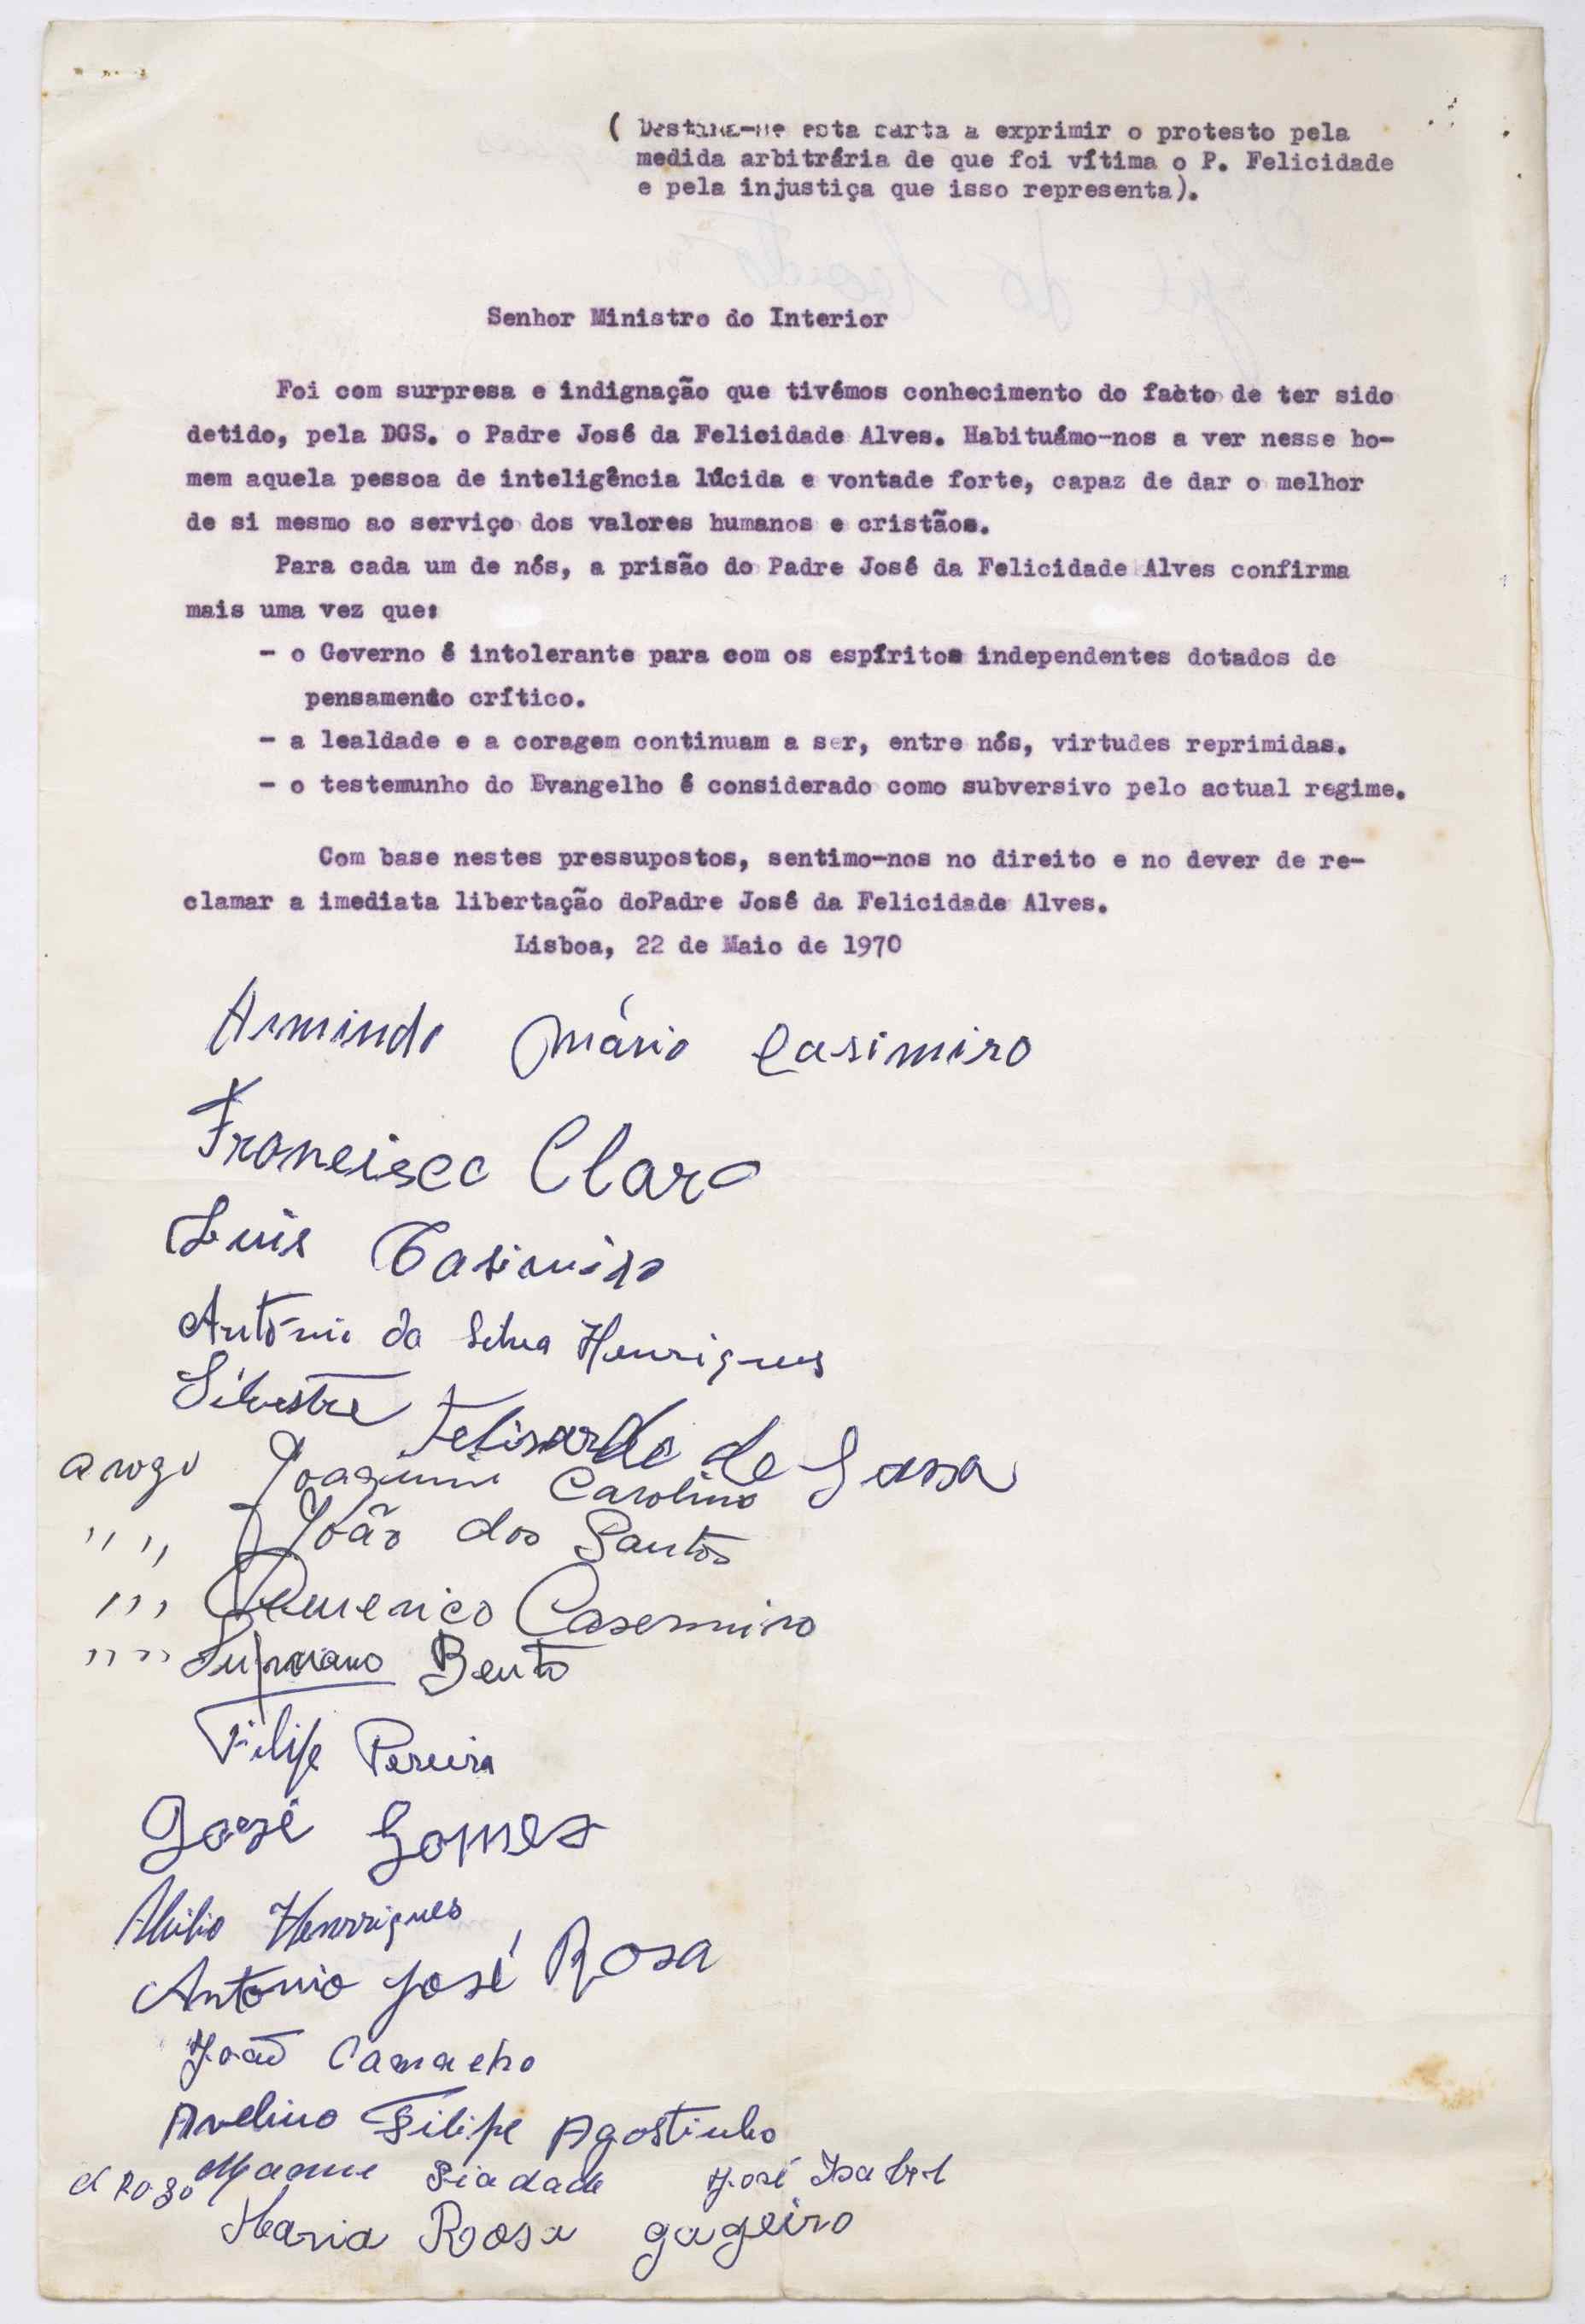 ( Destina-se esta carta a exprimir o protesto pela
medida arbitrária de que foi vítima o P. Felicidade
e pela injustiça que isso representa).
Senhor Ministro do Interior
Foi com surpresa e indignação que tivémos conhecimento do facto de ter sido
detido, pela DGS. o Padre José da Felicidade Alves. Habituámo-nos a ver nesse ho-
mem aquela pessoa de inteligência lúcida e vontade forte, capaz de dar o melhor
de si mesmo ao serviço dos valores humanos e cristãos.
Para cada um de nós, a prisão do Padre José da Felicidade Alves confirma
mais uma vez que:
- o Governo é intolerante para com os espíritos independentes dotados de
pensamento crítico.
- a lealdade e a coragem continuam a ser, entre nós, virtudes reprimidas.
- o testemunho do Evangelho é considerado como subversivo pelo actual regime.
Com base nestes pressupostos, sentimo-nos no direito e no dever de re-
clamar a imediata libertação doPadre José da Felicidade Alves.
Lisboa, 22 de Maio de 1970
Armindo Mário Casimiro
Francisco Claro
Luis Casimiro
António da Silva Henriques
Silvestre de Sousa
a rogo Joaquim Carolino
" " João dos Santos
" " Casermiro
" " Bento
Filipe Pereira
José Gomes
Abilio Henrriques
Antonio José Rosa
João Camacho
Avelino Filipe Agostinho
a Rogo Piadade José Isabel
Maria Rosa gageiro